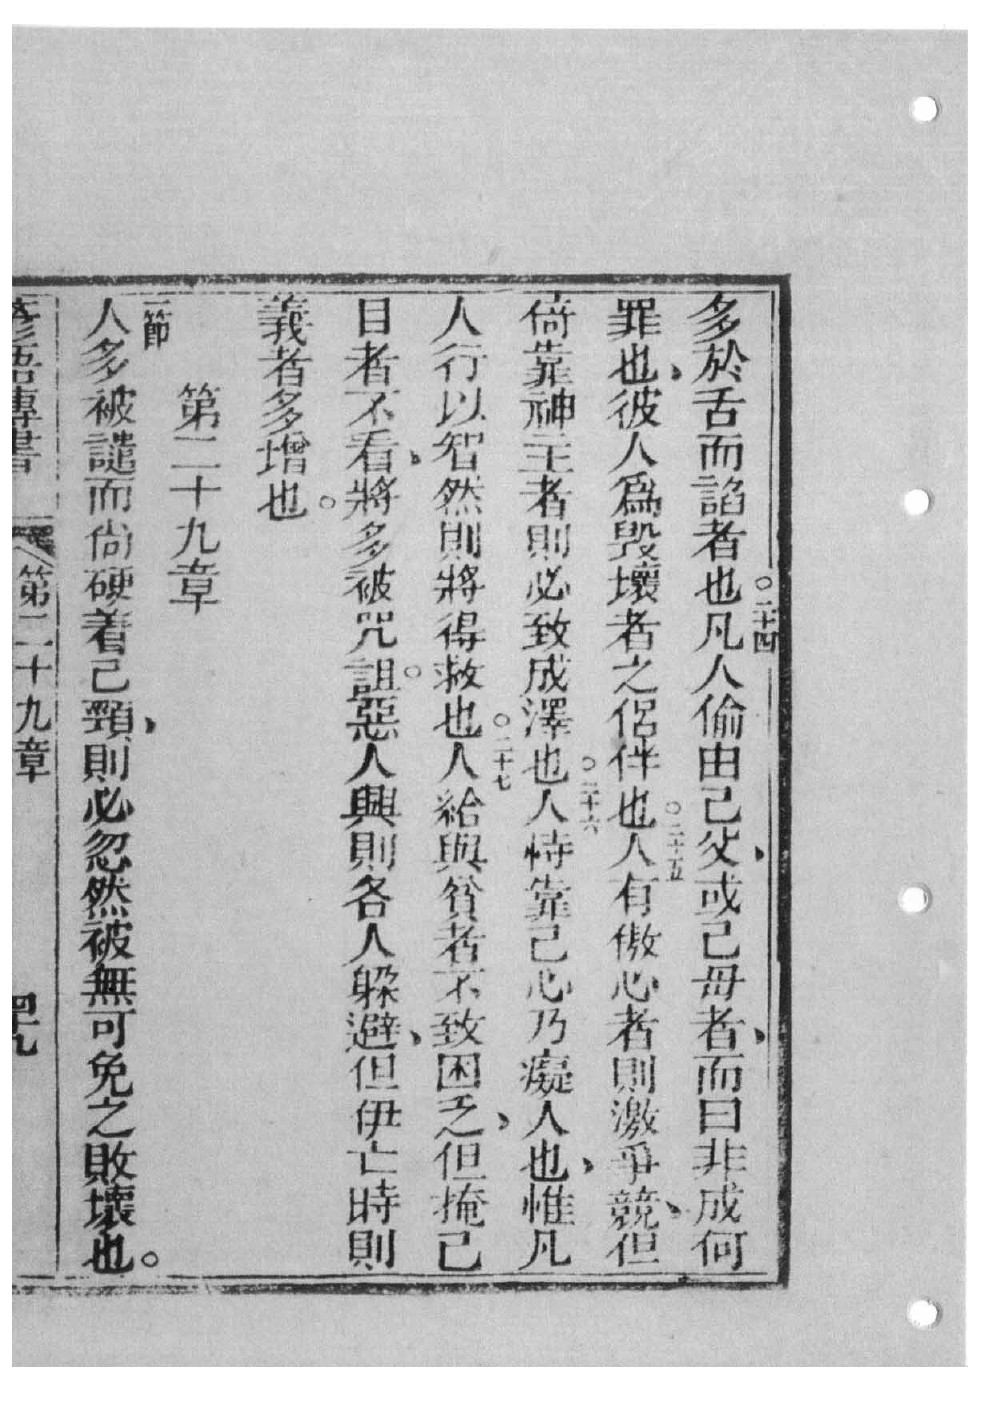 多於舌而諂者也○二十四凡人偷由己父、或己毋者、而曰非成何
罪也、彼人爲毀壞者之侶伴也○二十五人有傲心者則激爭競、但
倚靠神主者則必致成澤也○二十六人恃靠己心乃癡人也、惟凡
人行以智然則將得救也○二十七人給與貧者不致困乏、但掩己
目者不看、將多被咒詛○惡人興則各人躱避、但伊亡時則
義者多增也。
第二十九章
一節
人多被譴而尙硬着己頸、則必忽然被無可免之敗壞也。
諺語傳書
第二十九章
四十九